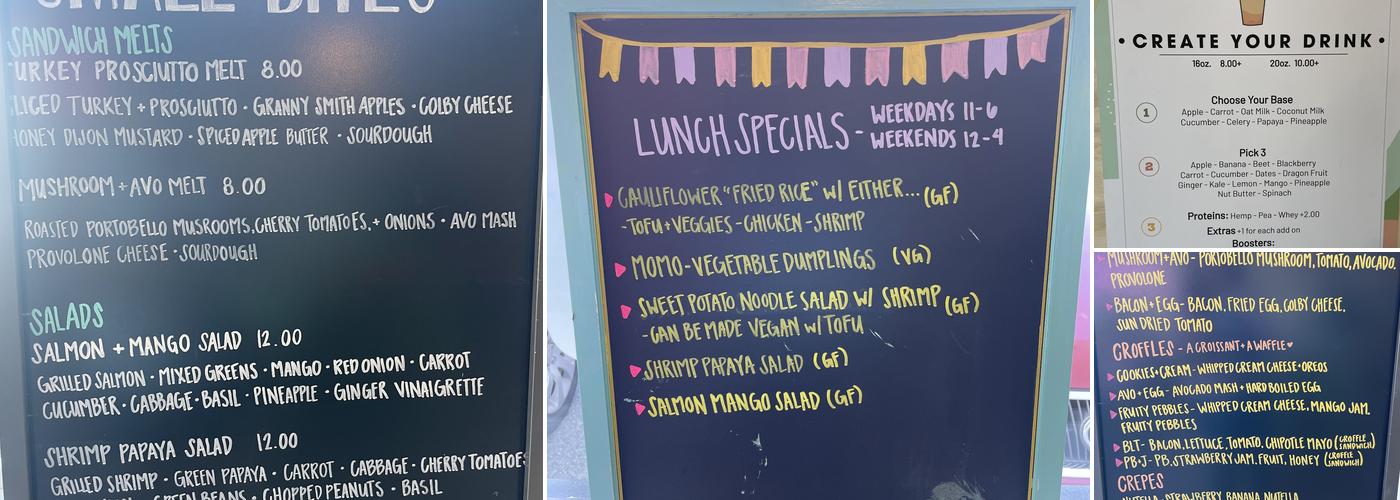 SMALL BITES
SANDWICH MELTS
TURKEY PROSCIUTTO MELT 8.00
SLICED TURKEY + PROSCIUTTO · GRANNY SMITH APPLES · COLBY CHEESE
HONEY DIJON MUSTARD · SPICED APPLE BUTTER · SOURDOUGH
MUSHROOM + AVO MELT 8.00
ROASTED PORTOBELLO MUSROOMS, CHERRY TOMATOES, + ONIONS · AVO MASH
PROVOLONE CHEESE · SOURDOUGH
SALADS
SALMON + MANGO SALAD 12.00
GRILLED SALMON · MIXED GREENS · MANGO · RED ONION · CARROT
CUCUMBER · CABBAGE · BASIL · PINEAPPLE · GINGER VINAIGRETTE
SHRIMP PAPAYA SALAD 12.00
GRILLED SHRIMP · GREEN PAPAYA · CARROT · CABBAGE · CHERRY TOMATOES
GREEN BEANS · CHOPPED PEANUTS · BASIL
LUNCH SPECIALS - WEEKDAYS 11-6
WEEKENDS 12-4
CAULIFLOWER "FRIED RICE" W/ EITHER... (GF)
-TOFU+VEGGIES -CHICKEN -SHRIMP
MOMO-VEGETABLE DUMPLINGS (VG)
SWEET POTATO NOODLE SALAD W/ SHRIMP (GF)
-CAN BE MADE VEGAN W/ TOFU
SHRIMP PAPAYA SALAD (GF)
SALMON MANGO SALAD (GF)
• CREATE YOUR DRINK •
16oz. 8.00+ 20oz. 10.00+
1
Choose Your Base
Apple - Carrot - Oat Milk - Coconut Milk
Cucumber - Celery - Papaya - Pineapple
2
Pick 3
Apple - Banana - Beet - Blackberry
Carrot - Cucumber - Dates - Dragon Fruit
Ginger - Kale - Lemon - Mango - Pineapple
Nut Butter - Spinach
3
Proteins: Hemp - Pea - Whey +2.00
Extras +1 for each add on
Boosters:
MUSHROOM+AVO- PORTOBELLO MUSHROOM, TOMATO, AVOCADO,
PROVOLONE
BACON+EGG- BACON, FRIED EGG, COLBY CHEESE,
SUN DRIED TOMATO
CROFFLES - A CROISSANT + A WAFFLE ♥
COOKIES+CREAM- WHIPPED CREAM CHEESE+OREOS
AVO+EGG - AVOCADO MASH + HARD BOILED EGG
FRUITY PEBBLES- WHIPPED CREAM CHEESE, MANGO JAM,
FRUITY PEBBLES
BLT- BACON, LETTUCE, TOMATO, CHIPOTLE MAYO (CROFFLE SANDWICH)
PB+J- PB, STRAWBERRY JAM, FRUIT, HONEY (CROFFLE SANDWICH)
CREPES
NUTELLA, STRAWBERRY, BANANA, NUTELLA